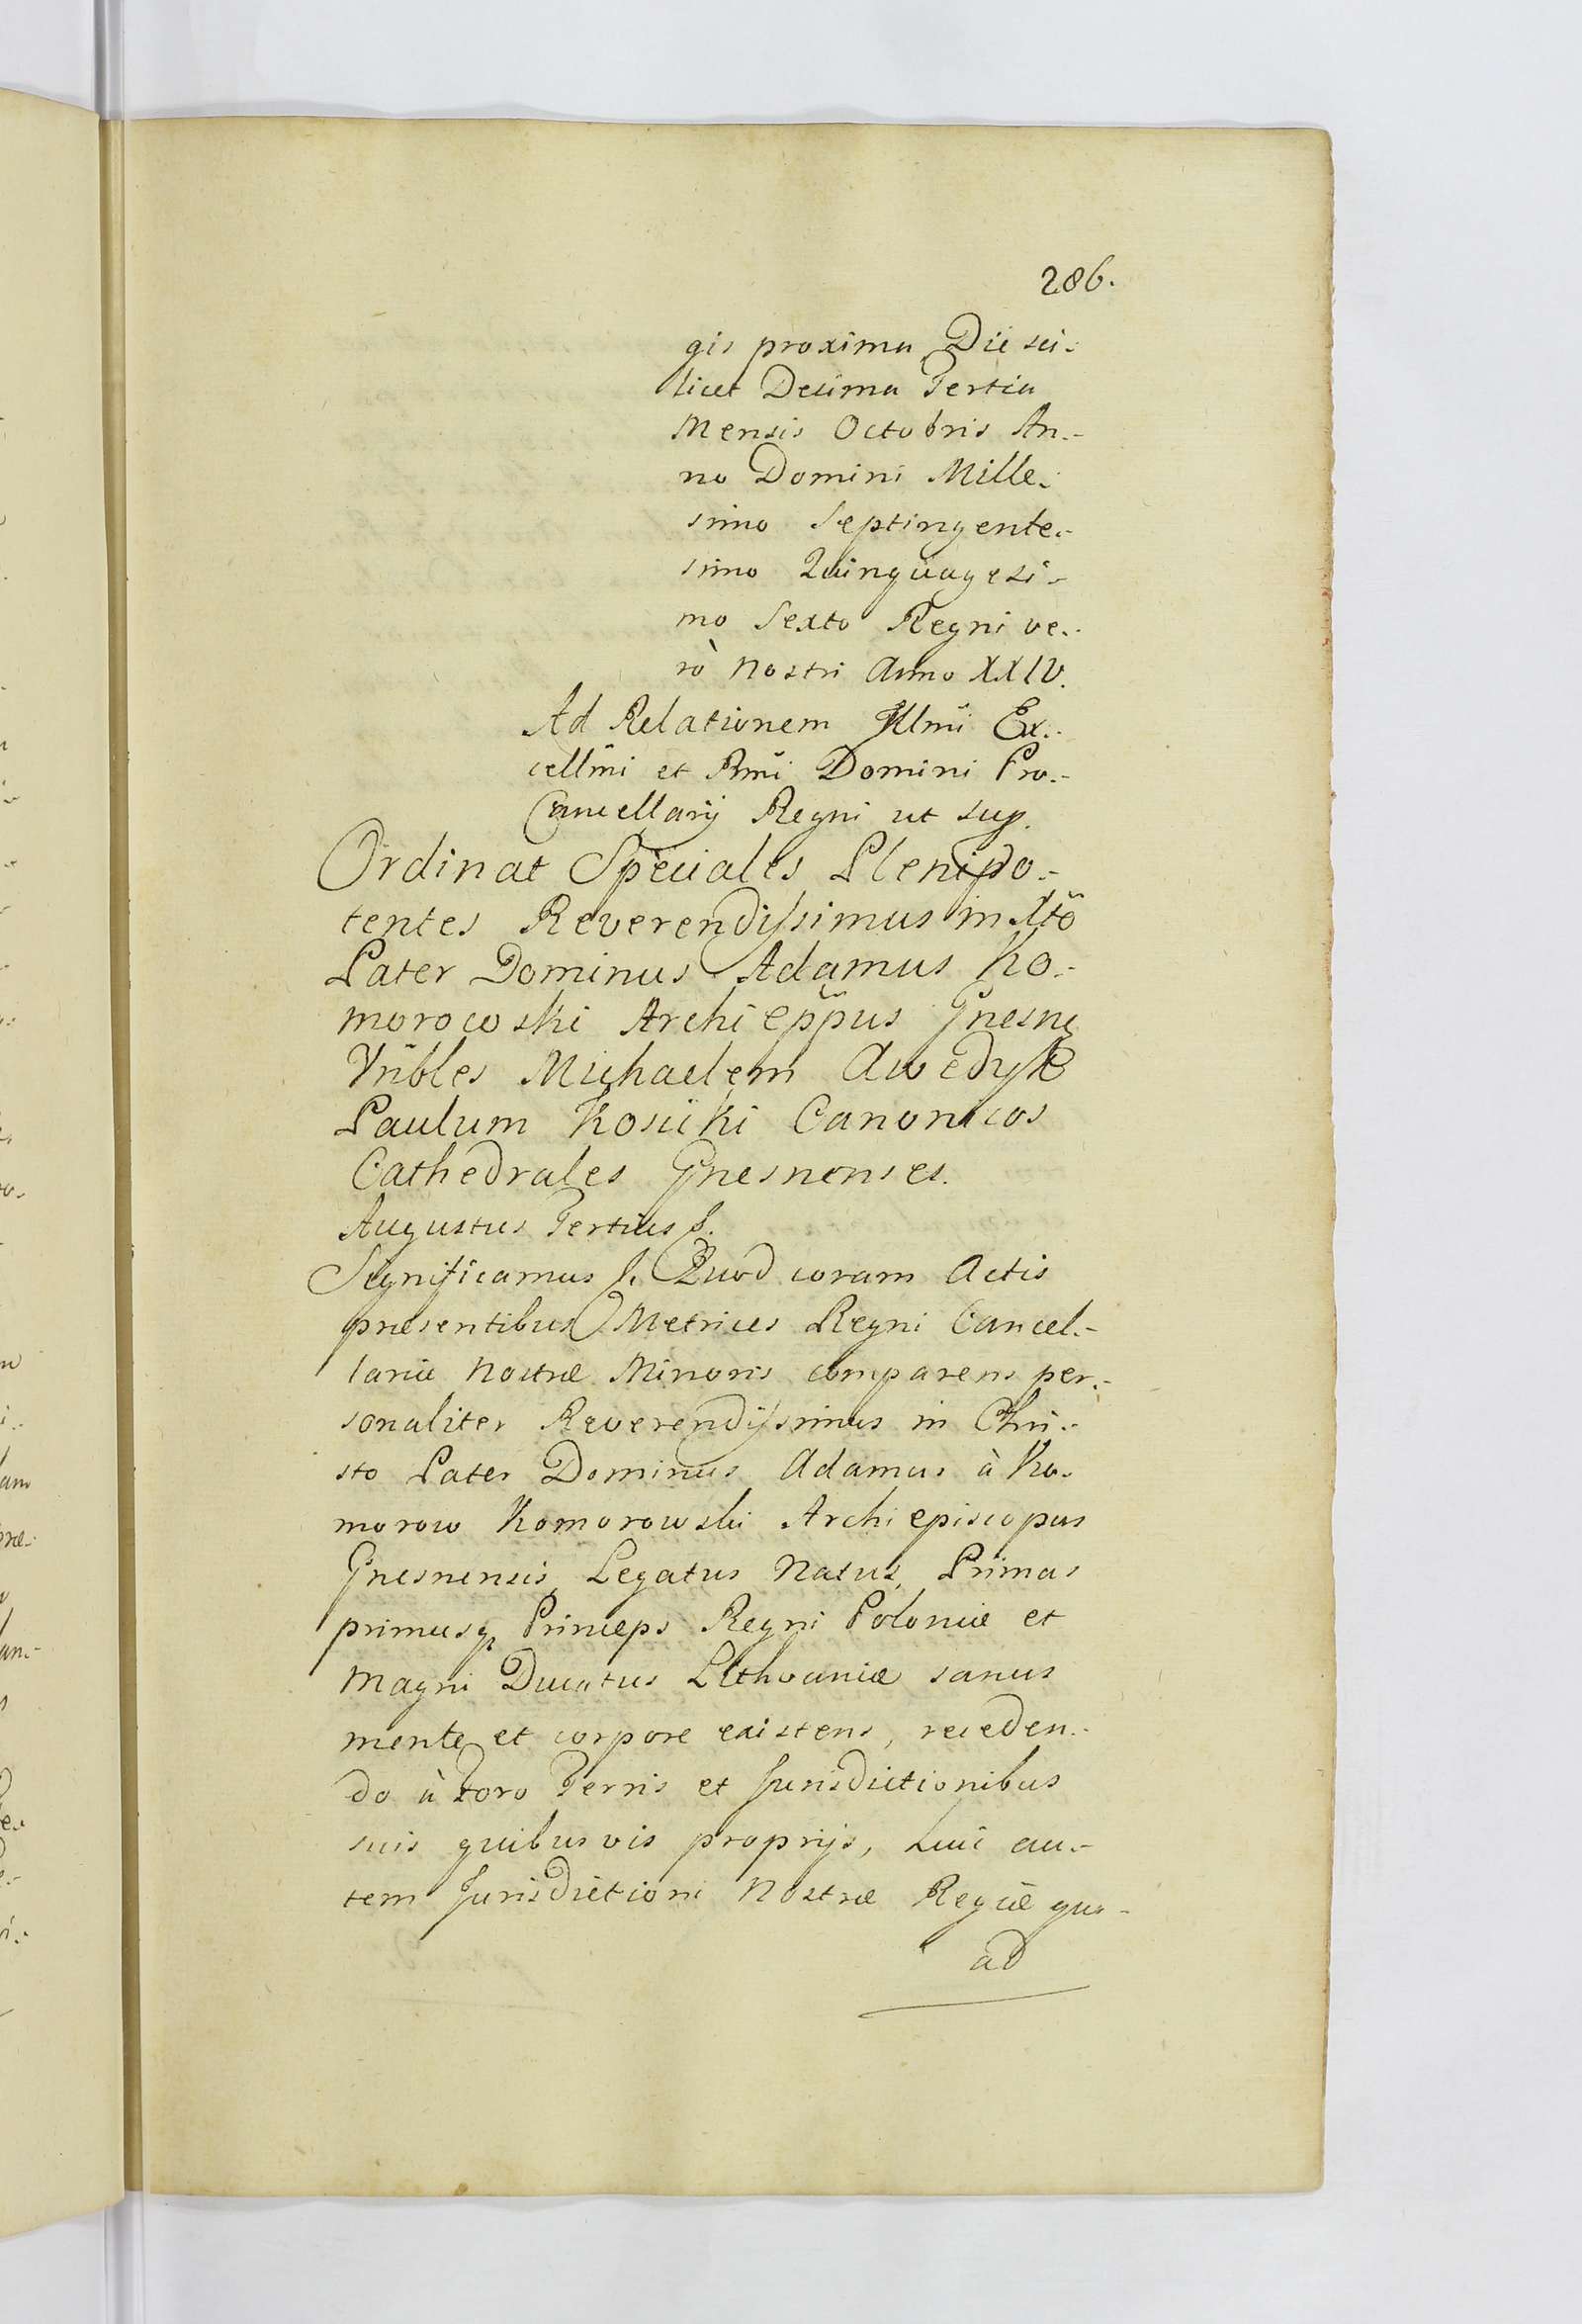 286.
gis proxima Die sci-
licet Decima Tertia
Mensis Octobris An-
no Domini Mille-
simo Septingente-
simo Quinquagesi-
mo Sexto Regni ve-
rò Nostri Anno XXIV.
Ad Relationem Illmi Ex-
cellmi et Rmi Domini Pro-
Cancellarij Regni ut sup.
Ordinat Speciales Plenipo-
tentes Reverendissimus in Xto
Pater Dominus Adamus Ko-
morowski Archi eppus Gnesnę
Vnbles Michaelem Awedyk
Paulum Kosicki Canonicos
Cathedrales Gnesnenses.
Augustus Tertius &.
Significamus &. Quod coram Actis
præsentibus Metrices Regni Cancel-
lariæ Nostræ Minoris comparens per-
sonaliter Reverendissimus in Chri-
sto Pater Dominus Adamus à Ko-
morow Komorowski Archi episcopus
Gnesnensis, Legatus Natus, Primas
primusq Princeps Regni Poloniæ et
Magni Ducatus Litthvaniæ sanus
mente et corpore existens, receden-
do à Foro Terris et Jurisdictionibus
suis quibusvis proprijs, huic au-
tem Jurisdictioni Nostræ Regiæ quo-
ad